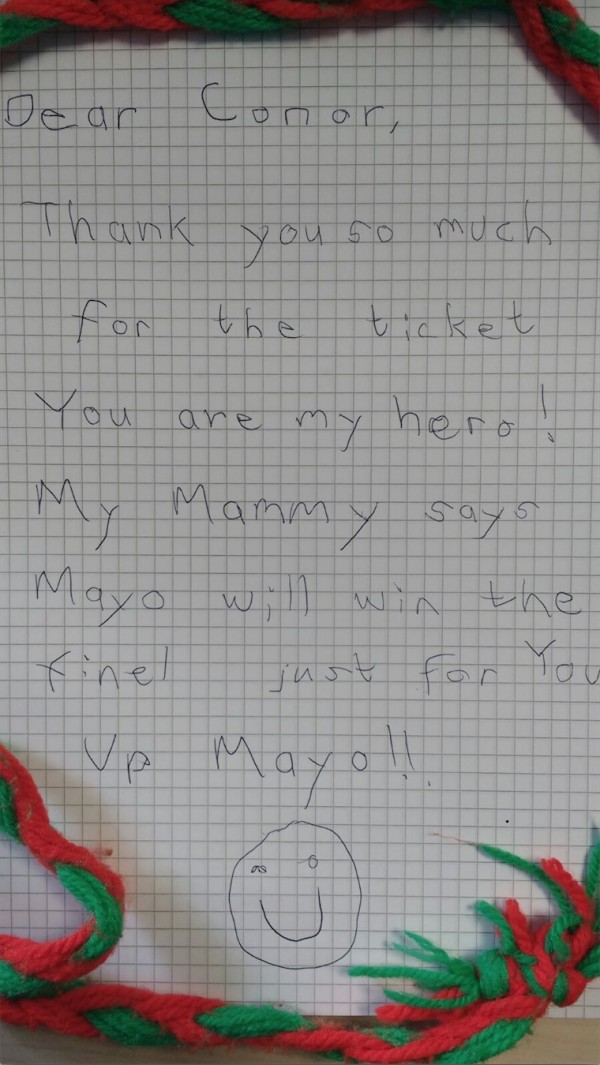 Dear Conor,
Thank you so much
for the ticket
You are my hero!
My Mammy says
Mayo will win the
finel just for You
Up Mayo!!